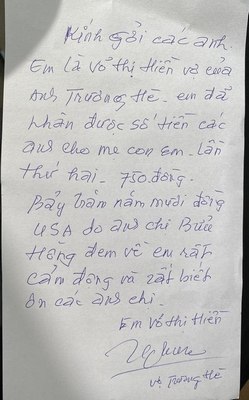 Kính gởi các anh.
Em là Võ thị Hiền vợ của
Anh Trương Hê. em đã
nhân được số tiền các
anh cho mẹ con em. lần
thứ hai. 750.đồng.
Bảy trăm năm mươi đồng
USA do anh chi Bửu
Hồng đem về em rất
cảm động và rất biết
ơn các anh chi.
Em Võ thi Hiền
vợ Trương Hê